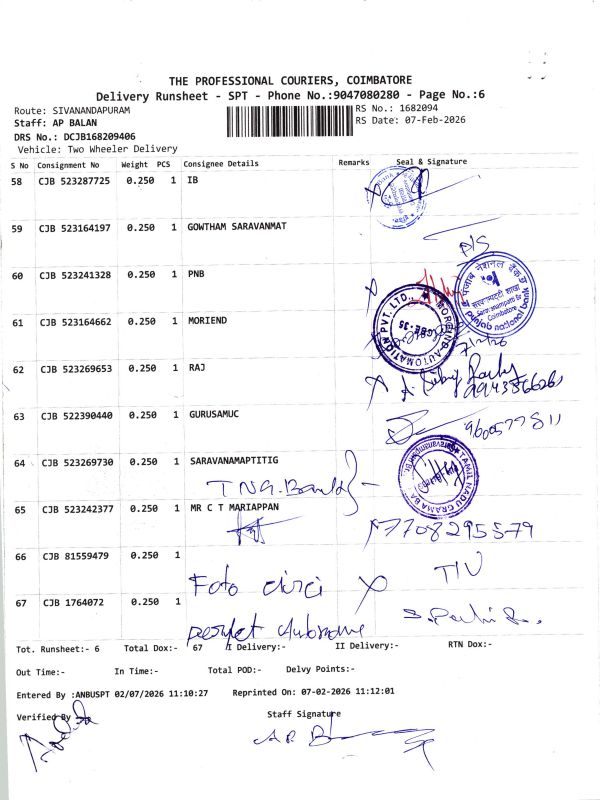 THE PROFESSIONAL COURIERS, COIMBATORE
Delivery Runsheet - SPT - Phone No.:9047080280 - Page No.:6
Route: SIVANANDAPURAM
RS No.: 1682094
Staff: AP BALAN
RS Date: 07-Feb-2026
DRS No.: DCJB168209406
Vehicle: Two Wheeler Delivery
S No Consignment No Weight PCS Consignee Details Remarks Seal & Signature
58 CJB 523287725 0.250 1 IB
59 CJB 523164197 0.250 1 GOWTHAM SARAVANMAT
P/S
60 CJB 523241328 0.250 1 PNB
पंजाब नेशनल बैंक
Coimbatore
punjab national bank
61 CJB 523164662 0.250 1 MORIEND
MOREIND AUTOMATION PVT. LTD.
CBE-35
62 CJB 523269653 0.250 1 RAJ
63 CJB 522390440 0.250 1 GURUSAMUC
9600577811
64 CJB 523269730 0.250 1 SARAVANAMAPTITIG
TNG.Bank
TAMIL NADU GRAMA BA
65 CJB 523242377 0.250 1 MR C T MARIAPPAN
7708295579
66 CJB 81559479 0.250 1
Foto
67 CJB 1764072 0.250 1
Tot. Runsheet:- 6 Total Dox:- 67 I Delivery:- II Delivery:- RTN Dox:-
Out Time:- In Time:- Total POD:- Delvy Points:-
Entered By :ANBUSPT 02/07/2026 11:10:27 Reprinted On: 07-02-2026 11:12:01
Verified By
Staff Signature